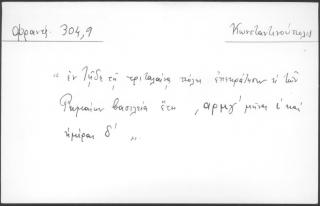 Φραντζ. 304,9 Κωνσταντινούπολις
“ ἐν τῇδε τῇ τρισταλαίνῃ πόλει ἐπεκράτησεν ἡ τῶν
Ῥωμαίων βασιλεία ἔτη ͵αρμγ' μῆνας ι' καὶ
ἡμέρας δ' „